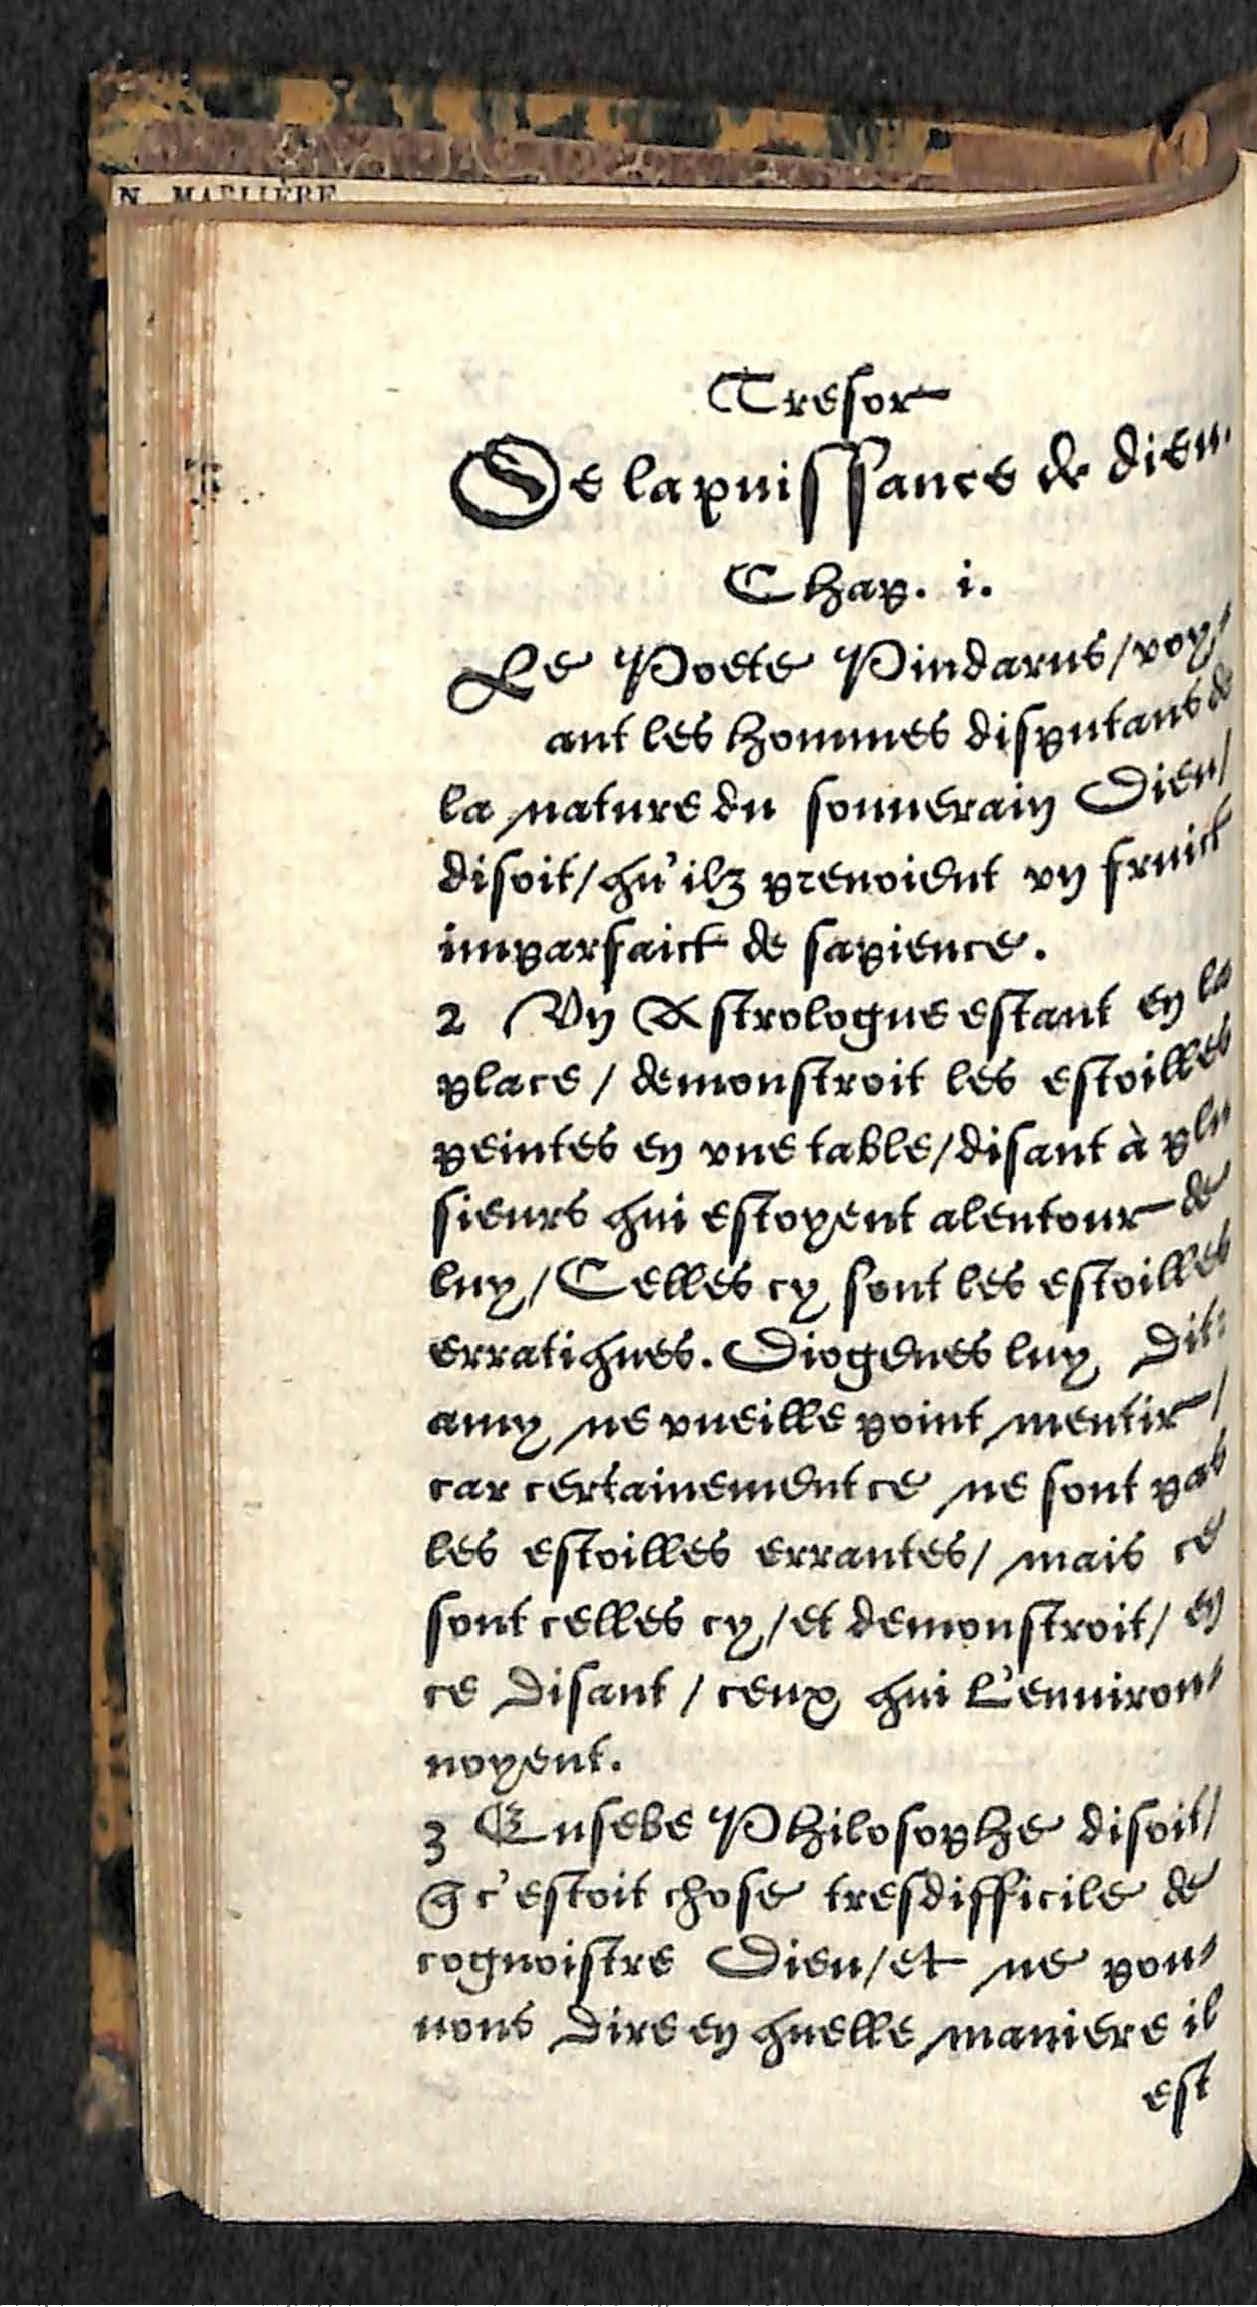 N. MARLIÈRE
Tresor
De la puissance de dieu.
Chap. i.
Le Poete Pindarus/voy⸗
ant les hommes disputans de
la nature du souuerain Dieu/
disoit/qu'ilz prenoient vn fruict
imparfaict de sapience.
2 Vn Astrologue estant en la
place/ demonstroit les estoilles
peintes en vne table/disant à plu
sieurs qui estoyent alentour de
luy/Celles cy sont les estoilles
erratiques. Diogenes luy dit:
amy ne vueille point mentir/
car certainement ce ne sont pas
les estoilles errantes/ mais ce
sont celles cy/et demonstroit/ en
ce disant/ ceux qui l'enuiron⸗
noyent.
3 Eusebe Philosophe disoit/
q̃ c'estoit chose tresdifficile de
cognoistre Dieu/et ne pou⸗
uons dire en quelle maniere il
est